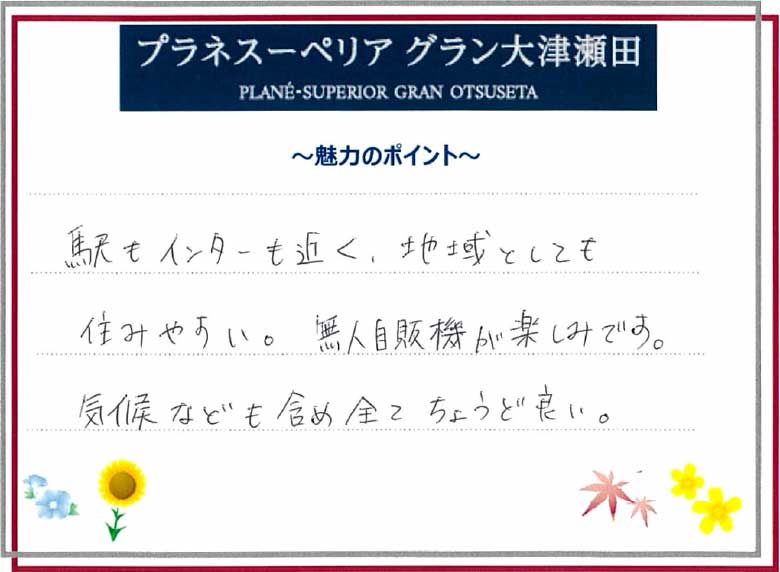 プラネスーペリア グラン大津瀬田
PLANÉ-SUPERIOR GRAN OTSUSETA
～魅力のポイント～
駅もインターも近く、地域としても
住みやすい。無人自販機が楽しみです。
気候なども含め全てちょうど良い。